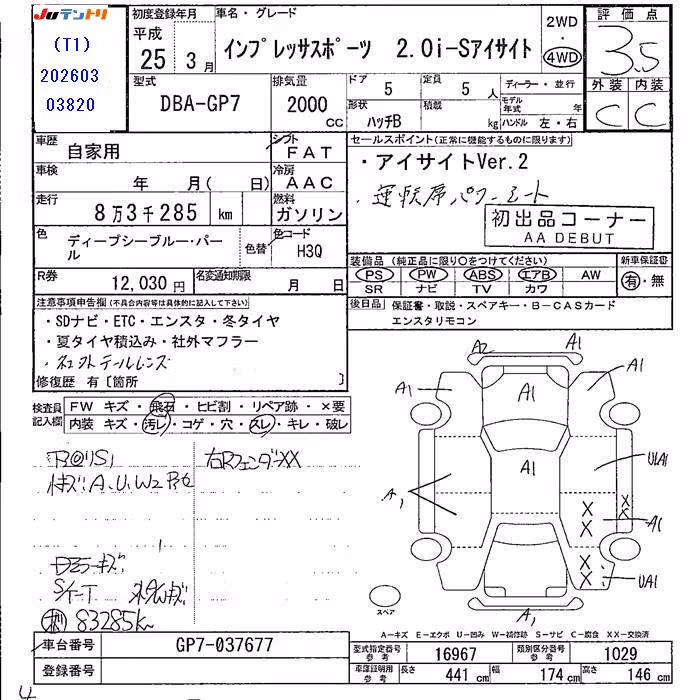 Juテントリ
(T1)
202603
03820
初度登録年月
平成
25年3月
車名・グレード
インプレッサスポーツ 2.0i-Sアイサイト
2WD
・
4WD
評価点
3.5
外装 内装
C C
型式
DBA-GP7
排気量
2000
CC
ドア
5
定員
5人
形状
ハッチB
積載
kg
ディーラー・並行
モデル年式 年
ハンドル 左・右
車歴
自家用
シフト
FAT
車検
年 月( 日)
冷房
AAC
走行
8万3千285 km
燃料
ガソリン
色
ディープシーブルー・パール
色替
色コード
H3Q
R券
12,030円
名変通知期限
月 日
セールスポイント(正常に機能するものに限ります)
・アイサイトVer.2
・運転席パワーシート
初出品コーナー
AA DEBUT
装備品(純正品に限り○をつけてください)
PS PW ABS エアB AW
SR ナビ TV カワ
新車保証書
有・無
後日品
保証書・取説・スペアキー・B-CASカード
エンスタリモコン
注意事項申告欄(不具合内容等は具体的に記入して下さい)
・SDナビ・ETC・エンスタ・冬タイヤ
・夏タイヤ積込み・社外マフラー
・社外テールレンズ
修復歴 有〔箇所 〕
検査員記入欄
FW キズ・飛石・ヒビ割・リペア跡・×要
内装 キズ・汚レ・コゲ・穴・スレ・キレ・破レ
右Rフェンダ XX
83285km
A2 A1
A1 A1 A1
A1 UA1
A1 A1
UA1
A1
スペア
A-キズ E-エクボ U-凹み W-補修跡 S-サビ C-腐食 XX-交換済
車台番号
GP7-037677
登録番号
型式指定番号 参考
16967
類別区分番号 参考
1029
車庫証明用 参考
長さ 441 cm 幅 174 cm 高さ 146 cm